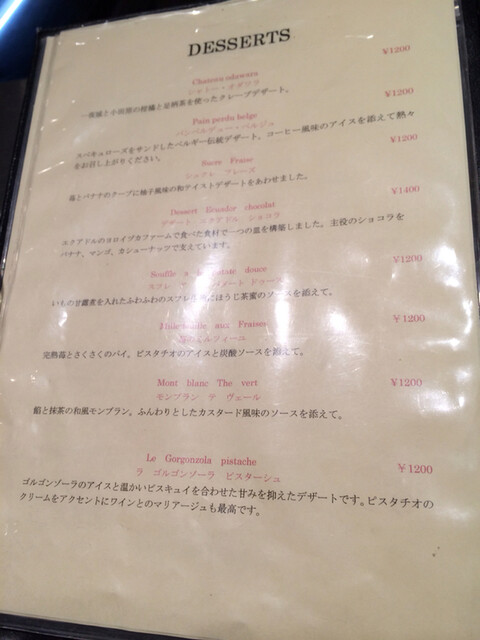 DESSERTS
¥1200
シャトー・オダワラ
を使ったクレープデザート。
¥1200
Pain perdu belge
パンペルデュー・ベルジュ
スペキュローズをサンドしたベルギー伝統デザート。コーヒー風味のアイスを添えて熱々
をお召し上がりください。
¥1200
Sucre Fraise
シュクル フレーズ
苺とバナナのクープに柚子風味の和テイストデザートをあわせました。
¥1400
Dessert Ecuador chocolat
デザート エクアドル ショコラ
エクアドルのヨロイヅカファームで食べた食材で一つの皿を構築しました。主役のショコラを
バナナ、マンゴ、カシューナッツで支えています。
¥1200
Souffle douce
スフレ
いもの甘露煮を入れたふわふわのスフレ ほうじ茶蜜のソースを添えて。
¥1200
aux Fraises
ミルフィーユ
完熟苺とさくさくのパイ。ピスタチオのアイスと炭酸ソースを添えて。
Mont blanc The vert
¥1200
モンブラン テ ヴェール
餡と抹茶の和風モンブラン。ふんわりとしたカスタード風味のソースを添えて。
Le Gorgonzola pistache
¥1200
ラ ゴルゴンゾーラ ピスターシュ
ゴルゴンゾーラのアイスと温かいビスキュイを合わせた甘みを抑えたデザートです。ピスタチオの
クリームをアクセントにワインとのマリアージュも最高です。